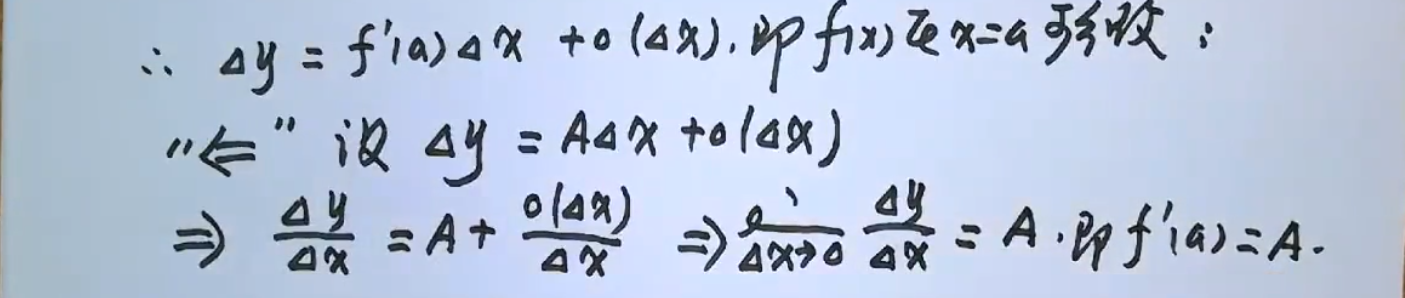 ∴ Δy = f'(a)Δx + o(Δx), 即 f(x) 在 x=a 可微;
"⇐" 设 Δy = AΔx + o(Δx)
⇒ Δy/Δx = A + o(Δx)/Δx ⇒ lim Δx→0 Δy/Δx = A. 即 f'(a) = A.